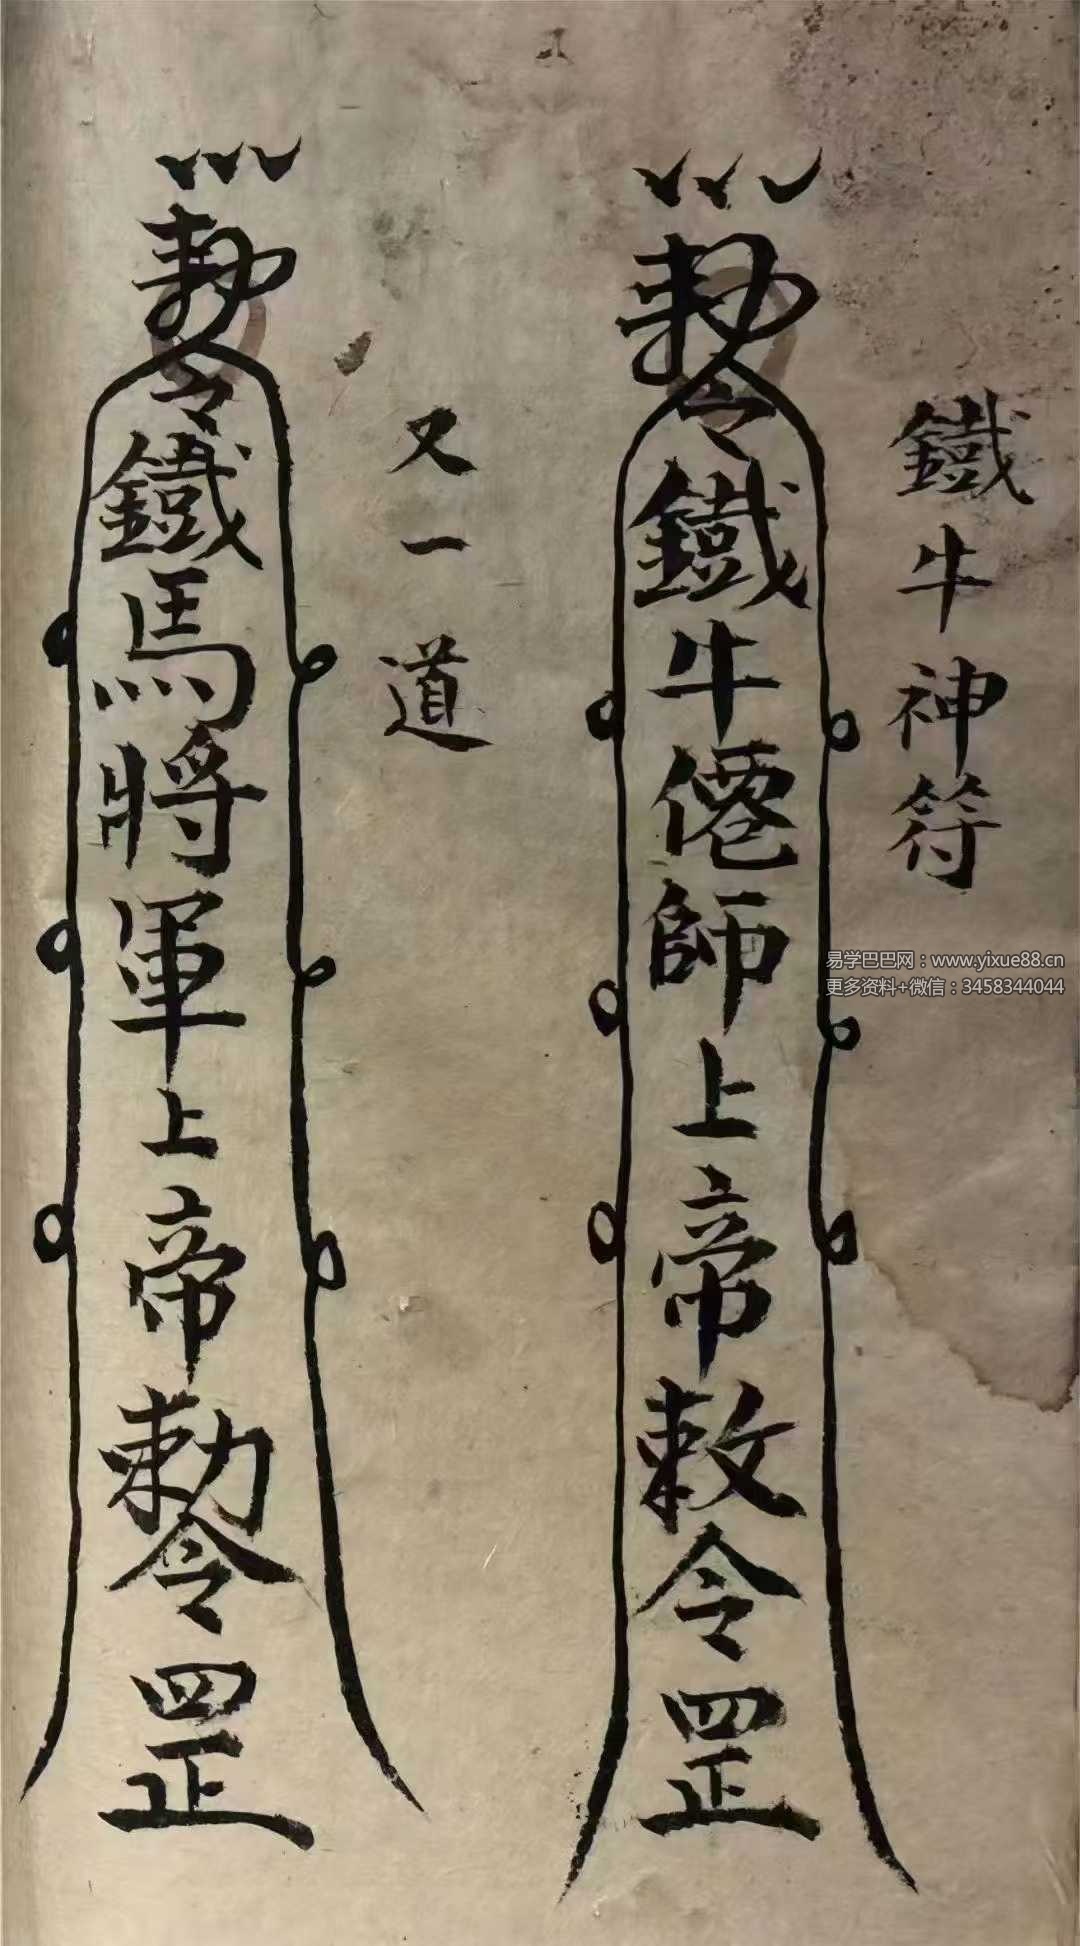 鐵牛神符
勅令鐵牛僊師上帝敕令罡
又一道
勅令鐵馬將軍上帝勅令罡
易学巴巴网：www.yixue88.cn
更多资料+微信：3458344044